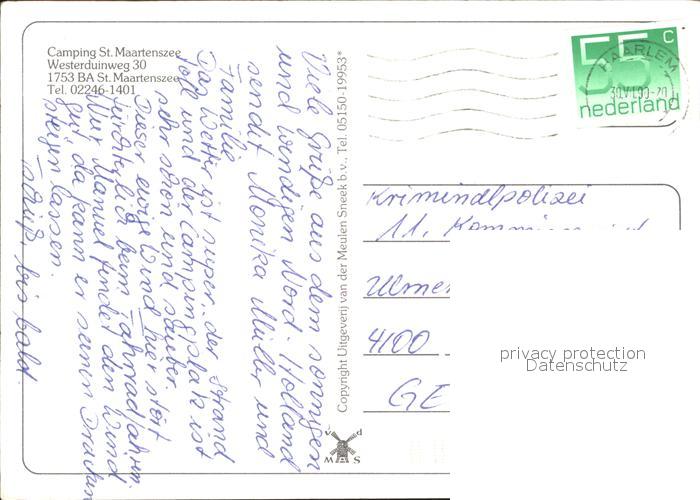 Camping St. Maartenszee
Westerduinweg 30
1753 BA St. Maartenszee
Tel. 02246-1401
Viele Grüße aus dem sonnigen
und windigen Nord-Holland
sendet Monika Müller und
Familie
Das Wetter ist super, der Strand
toll und der Campingplatz ist
sehr schön und sauber.
Dieser ewige Wind hier stört
fürchterlich beim Fahrradfahren.
Nur Manuel findet den Wind
gut, da kann er seinen Drachen
steigen lassen.
Tschüß, bis bald.
Copyright Uitgeverij van der Meulen Sneek b.v., Tel. 05150-19953*
v d
M A S
55 c
nederland
HAARLEM
Kriminalpolizei
11.
4100
privacy protection
Datenschutz